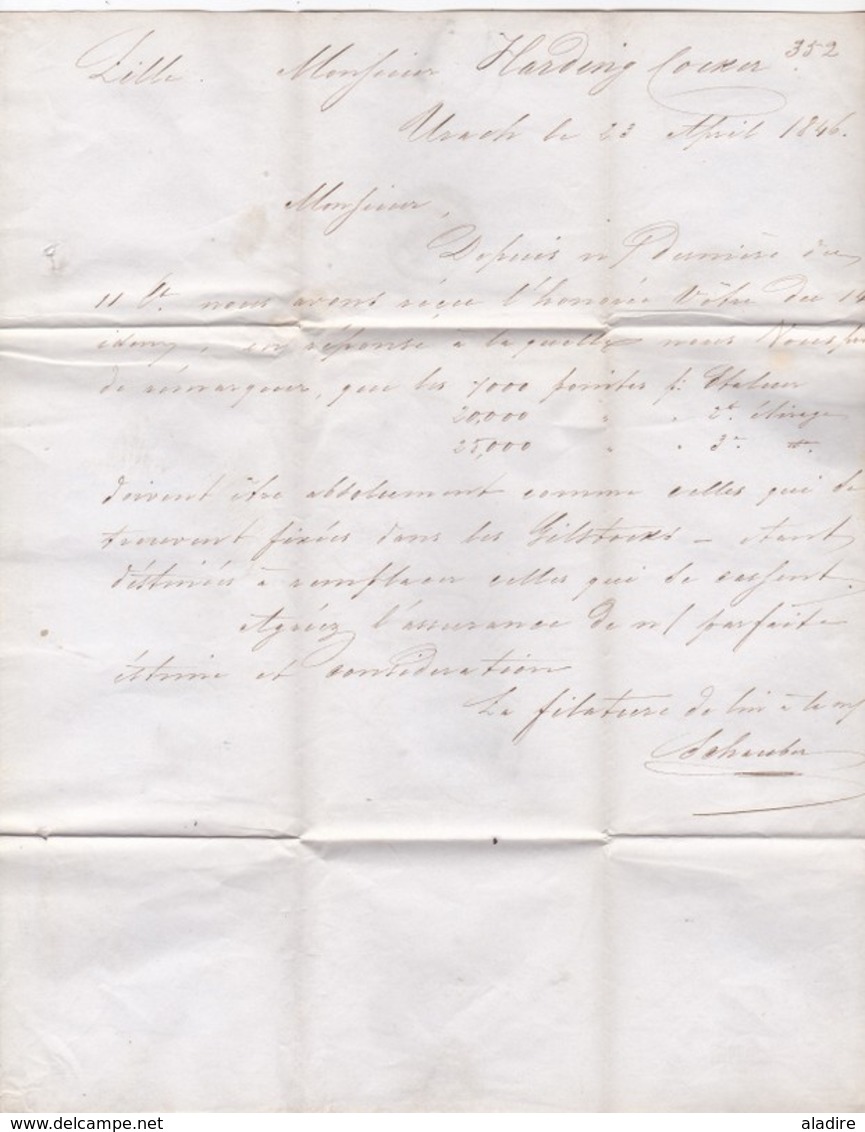 352
Lille. Monsieur Harding Cocker.
Urach le 23 April 1846.
Monsieur,
Depuis n/ dernière du
11 Ct. nous avons réçue l'honorée Vôtre du
idem, en réponse à laquelle nous Vous
de rémarquer, que les 7000 pointes p: Etaleur
20,000 " " 2e. étirage
25,000 " " 3e.
doivent être absolument comme celles qui se
trouvent fixées dans les Gilstocks – étant
déstinées à remplacer celles qui se cassent.
Agréez l'assurance de n/ parfaite
éstime et consideration
La filature de lin à la
Schauber
delcampe.net
aladire